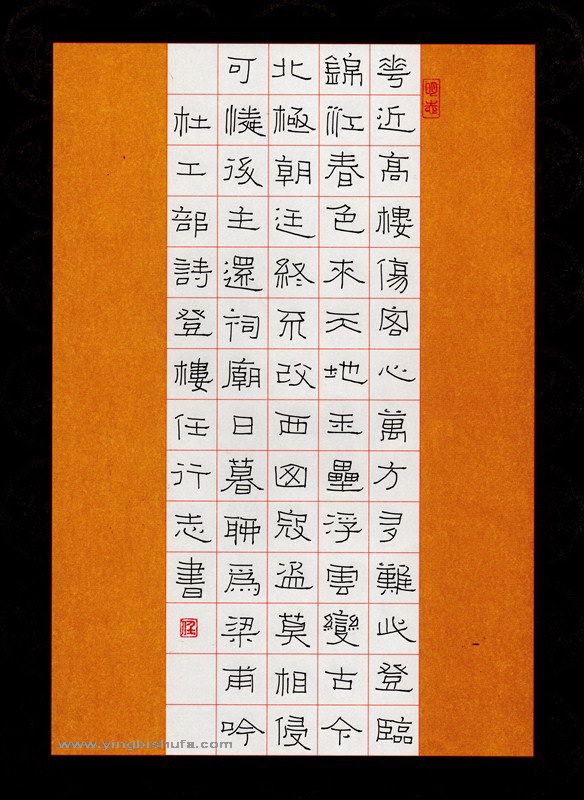 花近高樓傷客心萬方多難此登臨
錦江春色來天地玉壘浮雲變古今
北極朝廷終不改西山寇盜莫相侵
可憐後主還祠廟日暮聊為梁甫吟
杜工部詩登樓任行志書
www.yingbishufa.com